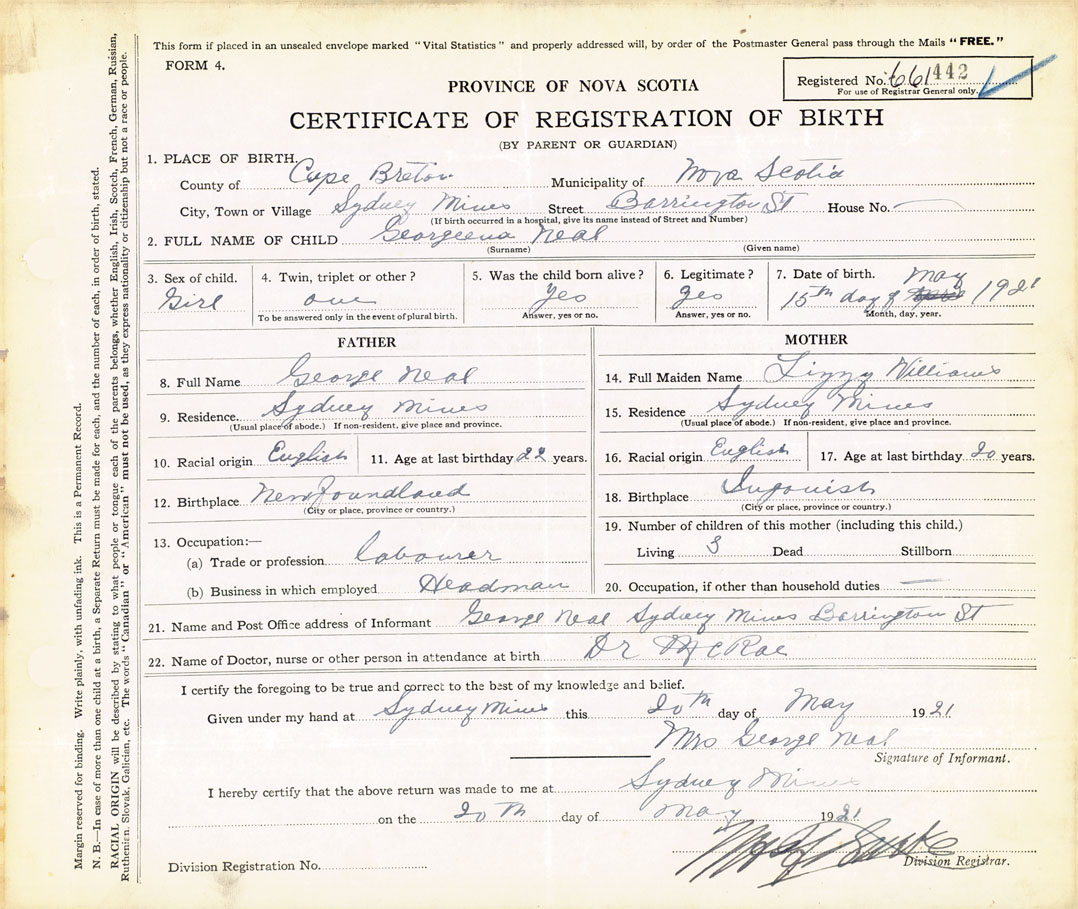 This form if placed in an unsealed envelope marked "Vital Statistics" and properly addressed will, by order of the Postmaster General pass through the Mails "FREE."
FORM 4.
Registered No. 661442
For use of Registrar General only.
PROVINCE OF NOVA SCOTIA
CERTIFICATE OF REGISTRATION OF BIRTH
(BY PARENT OR GUARDIAN)
1. PLACE OF BIRTH.
County of Cape Breton Municipality of Nova Scotia
City, Town or Village Sydney Mines Street Barrington St House No.
(If birth occurred in a hospital, give its name instead of Street and Number)
2. FULL NAME OF CHILD Georgeena Neal
(Surname) (Given name)
3. Sex of child. 4. Twin, triplet or other? 5. Was the child born alive? 6. Legitimate? 7. Date of birth. May
Girl one Yes yes 15th day of 1921
To be answered only in the event of plural birth. Answer, yes or no. Answer, yes or no. Month, day, year.
FATHER
8. Full Name George Neal
9. Residence. Sydney Mines
(Usual place of abode.) If non-resident, give place and province.
10. Racial origin English 11. Age at last birthday 22 years.
12. Birthplace Newfoundland
(City or place, province or country.)
13. Occupation:—
(a) Trade or profession labourer
(b) Business in which employed Headman
MOTHER
14. Full Maiden Name Lizzy Williams
15. Residence Sydney Mines
(Usual place of abode.) If non-resident, give place and province.
16. Racial origin English 17. Age at last birthday 20 years.
18. Birthplace Ingonish
(City or place, province or country.)
19. Number of children of this mother (including this child.)
Living 3 Dead Stillborn
20. Occupation, if other than household duties —
21. Name and Post Office address of Informant George Neal Sydney Mines Barrington St
22. Name of Doctor, nurse or other person in attendance at birth Dr McRae
I certify the foregoing to be true and correct to the best of my knowledge and belief.
Given under my hand at Sydney Mines this 20th day of May 1921
Mrs George Neal
Signature of Informant.
I hereby certify that the above return was made to me at Sydney Mines
on the 20th day of May 1921
Division Registrar.
Division Registration No.
Margin reserved for binding. Write plainly, with unfading ink. This is a Permanent Record.
N. B.—In case of more than one child at a birth, a Separate Return must be made for each, and the number of each, in order of birth, stated.
RACIAL ORIGIN will be described by stating to what people or tongue each of the parents belongs, whether English, Irish, Scotch, French, German, Russian,
Ruthenian, Slovak, Galician, etc. The words "Canadian" or "American" must not be used, as they express nationality or citizenship but not a race or people.